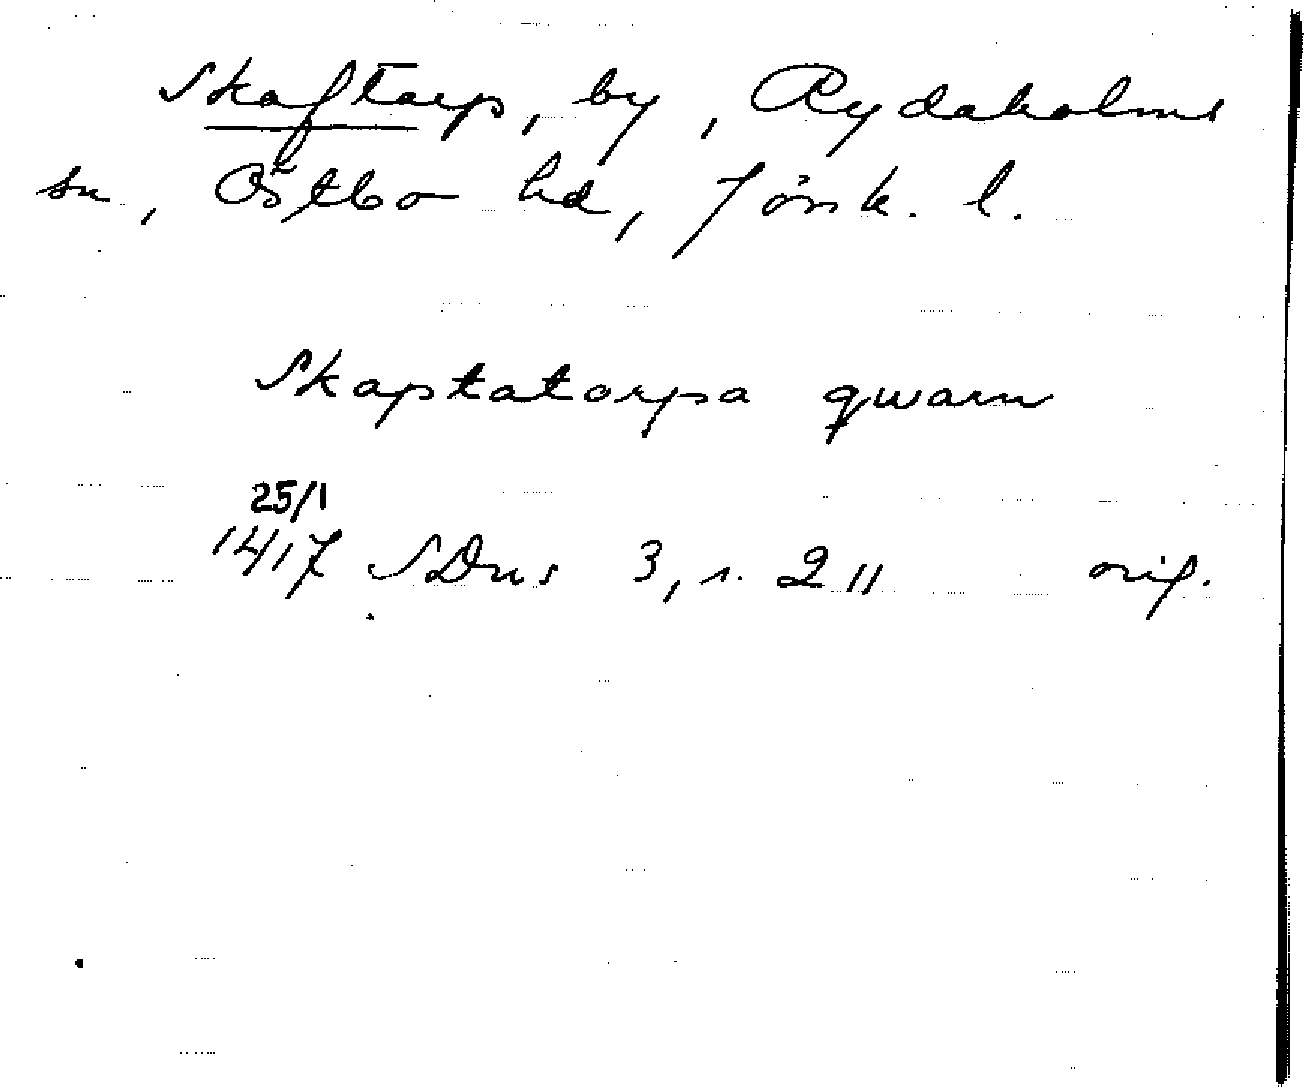 Skaftarp, by, Rydaholms
sn, Östbo hd, Jönk. l.
Skaptatorpa qwarn
25/1
1417 SDns 3, s. 211 orig.